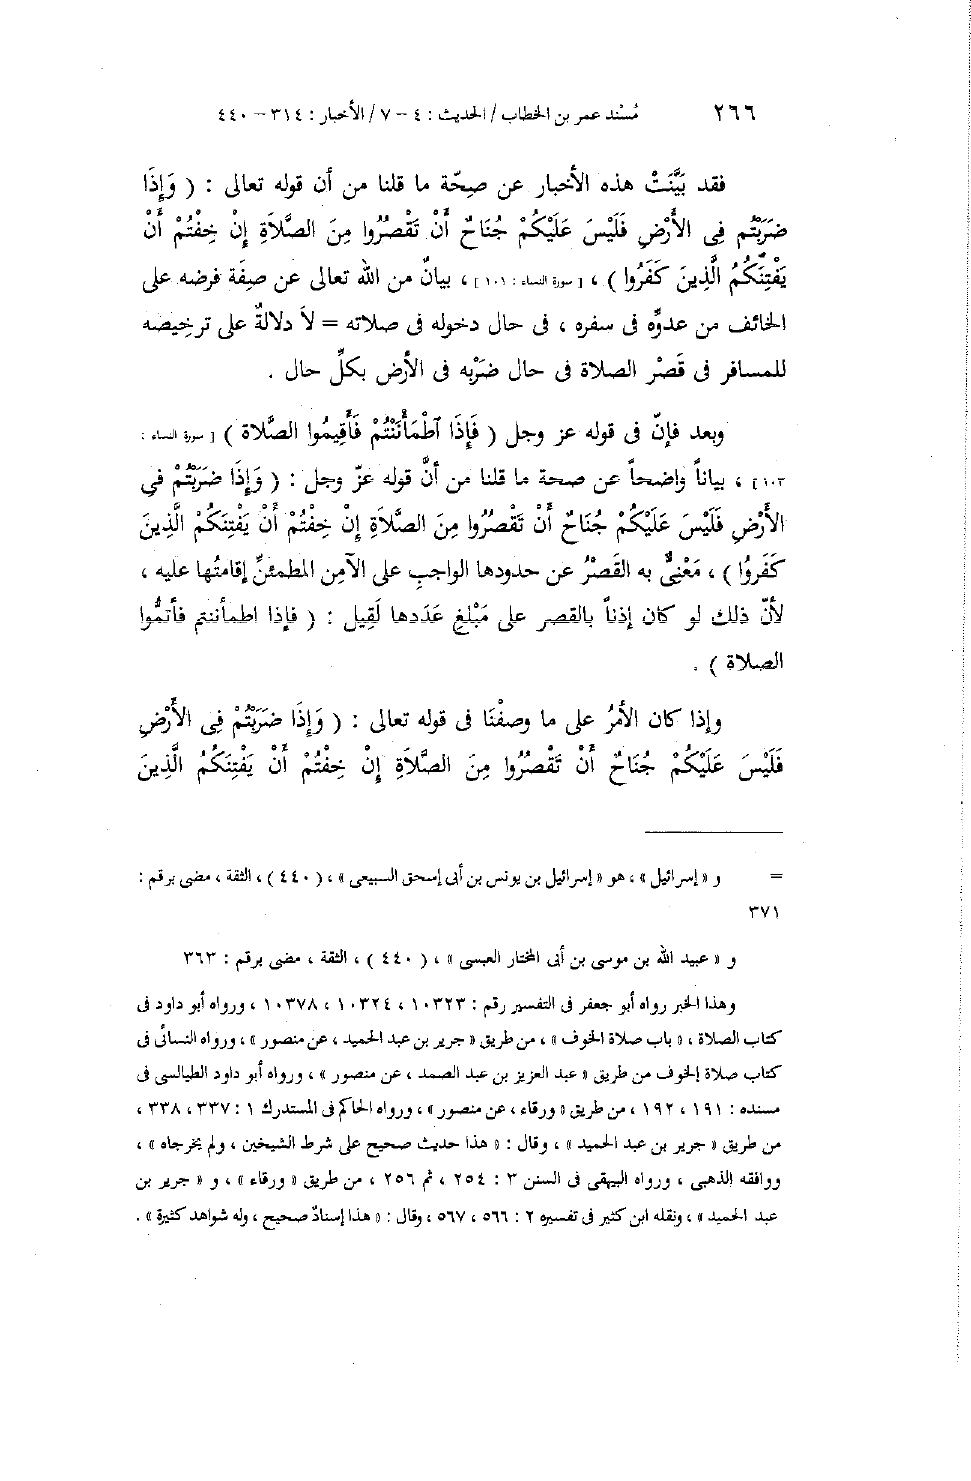 ٢٦٦ مُسْند عمر بن الخطاب / الحديث : ٤ – ٧ / الأخبار : ٣١٤ – ٤٤٠
فقد بَيَّنَتْ هذه الأخبار عن صِحّة ما قلنا من أن قوله تعالى : ( وَإِذَا
ضَرَبْتُم فِى الأَرْضِ فَلَيْسَ عَلَيْكُمْ جُنَاحٌ أَنْ تَقْصُرُوا مِنَ الصَّلَاةِ إِنْ خِفْتُمْ أَنْ
يَفْتِنَكُمُ الَّذِينَ كَفَرُوا ) ، [ سورة النساء : ١٠١ ] ، بيانٌ من الله تعالى عن صِفَة فرضه على
الخائف من عدوِّه فى سفره ، فى حال دخوله فى صلاته = لاَ دلالةٌ على ترخيصه
للمسافر فى قَصْر الصلاة فى حال ضَرْبه فى الأرض بكلِّ حال .
وبعد فإنّ فى قوله عز وجل ( فَإِذَا آطْمَأْنَنْتُمْ فَأَقِيمُوا الصَّلاة ) [ سورة النساء :
١٠٣ ] ، بياناً واضحاً عن صحة ما قلنا من أنَّ قوله عزّ وجل : ( وَإِذَا ضَرَبْتُمْ فى
الأَرْضِ فَلَيْسَ عَلَيْكُمْ جُنَاحٌ أَنْ تَقْصُرُوا مِنَ الصَّلَاةِ إِنْ خِفْتُمْ أَنْ يَفْتِنَكُم الَّذِينَ
كَفَرُوا ) ، مَعْنِىٌّ به القَصْرُ عن حدودها الواجبِ على الآمِن المطمئنّ إقامتُها عليه ،
لأنّ ذلك لو كان إذناً بالقصر على مَبْلغِ عَدَدها لَقِيل : ( فإذا اطمأننتم فأتمُّوا
الصلاة ) .
وإذا كان الأمرُ على ما وصفْنَا فى قوله تعالى : ( وَإِذَا ضَرَبْتُمْ فِى الأَرْضِ
فَلَيْسَ عَلَيْكُمْ جُنَاحٌ أَنْ تَقْصُرُوا مِنَ الصَّلَاةِ إِنْ خِفْتُمْ أَنْ يَفْتِنَكُمُ الَّذِينَ
= و « إسرائيل » ، هو « إسرائيل بن يونس بن أبى إسحق السبيعى » ، ( ٤٤٠ ) ، الثقة ، مضى برقم :
٣٧١
و « عبيد الله بن موسى بن أبى المختار العبسى » ، ( ٤٤٠ ) ، الثقة ، مضى برقم : ٣٦٣
وهذا الخبر رواه أبو جعفر فى التفسير رقم : ١٠٣٢٣ ، ١٠٣٢٤ ، ١٠٣٧٨ ، ورواه أبو داود فى
كتاب الصلاة ، « باب صلاة الخوف » ، من طريق « جرير بن عبد الحميد ، عن منصور » ، ورواه النسائى فى
كتاب صلاة الخوف من طريق « عبد العزيز بن عبد الصمد ، عن منصور » ، ورواه أبو داود الطيالسى فى
مسنده : ١٩١ ، ١٩٢ ، من طريق « ورقاء ، عن منصور » ، ورواه الحاكم فى المستدرك ١ : ٣٣٧ ، ٣٣٨ ،
من طريق « جرير بن عبد الحميد » ، وقال : « هذا حديث صحيح على شرط الشيخين ، ولم يخرجاه » ،
ووافقه الذهبى ، ورواه البيهقى فى السنن ٣ : ٢٥٤ ، ثم ٢٥٦ ، من طريق « ورقاء » ، و « جرير بن
عبد الحميد » ، ونقله ابن كثير فى تفسيره ٢ : ٥٦٦ ، ٥٦٧ ، وقال : « هذا إسنادٌ صحيح ، وله شواهد كثيرة » .